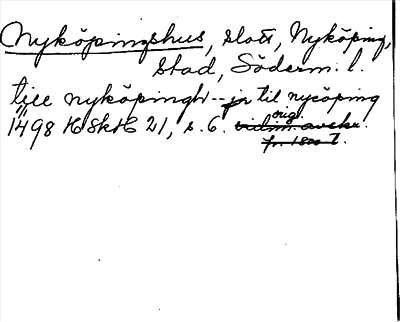 Nyköpingshus, slott, Nyköping,
stad, Söderm. l.
till nyköpingh -- jn til nycöping
14/4 98 HSkH 21, s. 6. orig. vidim. avskr.
fr. 1800-t.